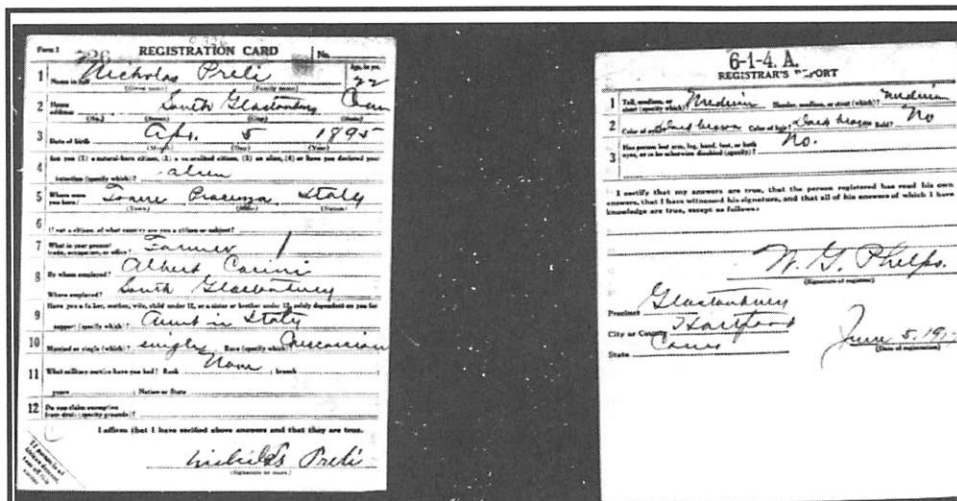 Form 1 726 REGISTRATION CARD No.
1 Name in full Nicholas Preli Age, in yrs. 22
(Given name) (Family name)
2 Home address South Glastonbury Conn
(No.) (Street) (City) (State)
3 Date of birth Apr. 5 1895
(Month) (Day) (Year)
4 Are you (1) a natural-born citizen, (2) a naturalized citizen, (3) an alien, (4) or have you declared your
intention (specify which)? alien
5 Where were you born? Piacenza Italy
(Town) (State) (Nation)
6 If not a citizen, of what country are you a citizen or subject?
7 What is your present trade, occupation, or office? Farmer
8 By whom employed? Albert Carini
Where employed? South Glastonbury
9 Have you a father, mother, wife, child under 12, or a sister or brother under 12, solely dependent on you for
support (specify which)? Aunt in Italy
10 Married or single (which)? single Race (specify which)? Caucasian
11 What military service have you had? Rank None ; branch ;
years ; Nation or State
12 Do you claim exemption from draft (specify grounds)?
I affirm that I have verified above answers and that they are true.
Nicholas Preli
(Signature or mark)
6-1-4. A.
REGISTRAR'S REPORT
1 Tall, medium, or short (specify which)? Medium Slender, medium, or stout (which)? Medium
2 Color of eyes? Dark brown Color of hair? Dark brown Bald? No
3 Has person lost arm, leg, hand, foot, or both eyes, or is he otherwise disabled (specify)? No.
I certify that my answers are true, that the person registered has read his own
answers, that I have witnessed his signature, and that all of his answers of which I have
knowledge are true, except as follows:
W. G. Phelps.
(Signature of registrar)
Precinct Glastonbury
City or County Hartford
State Conn
June 5, 191
(Date of registration)